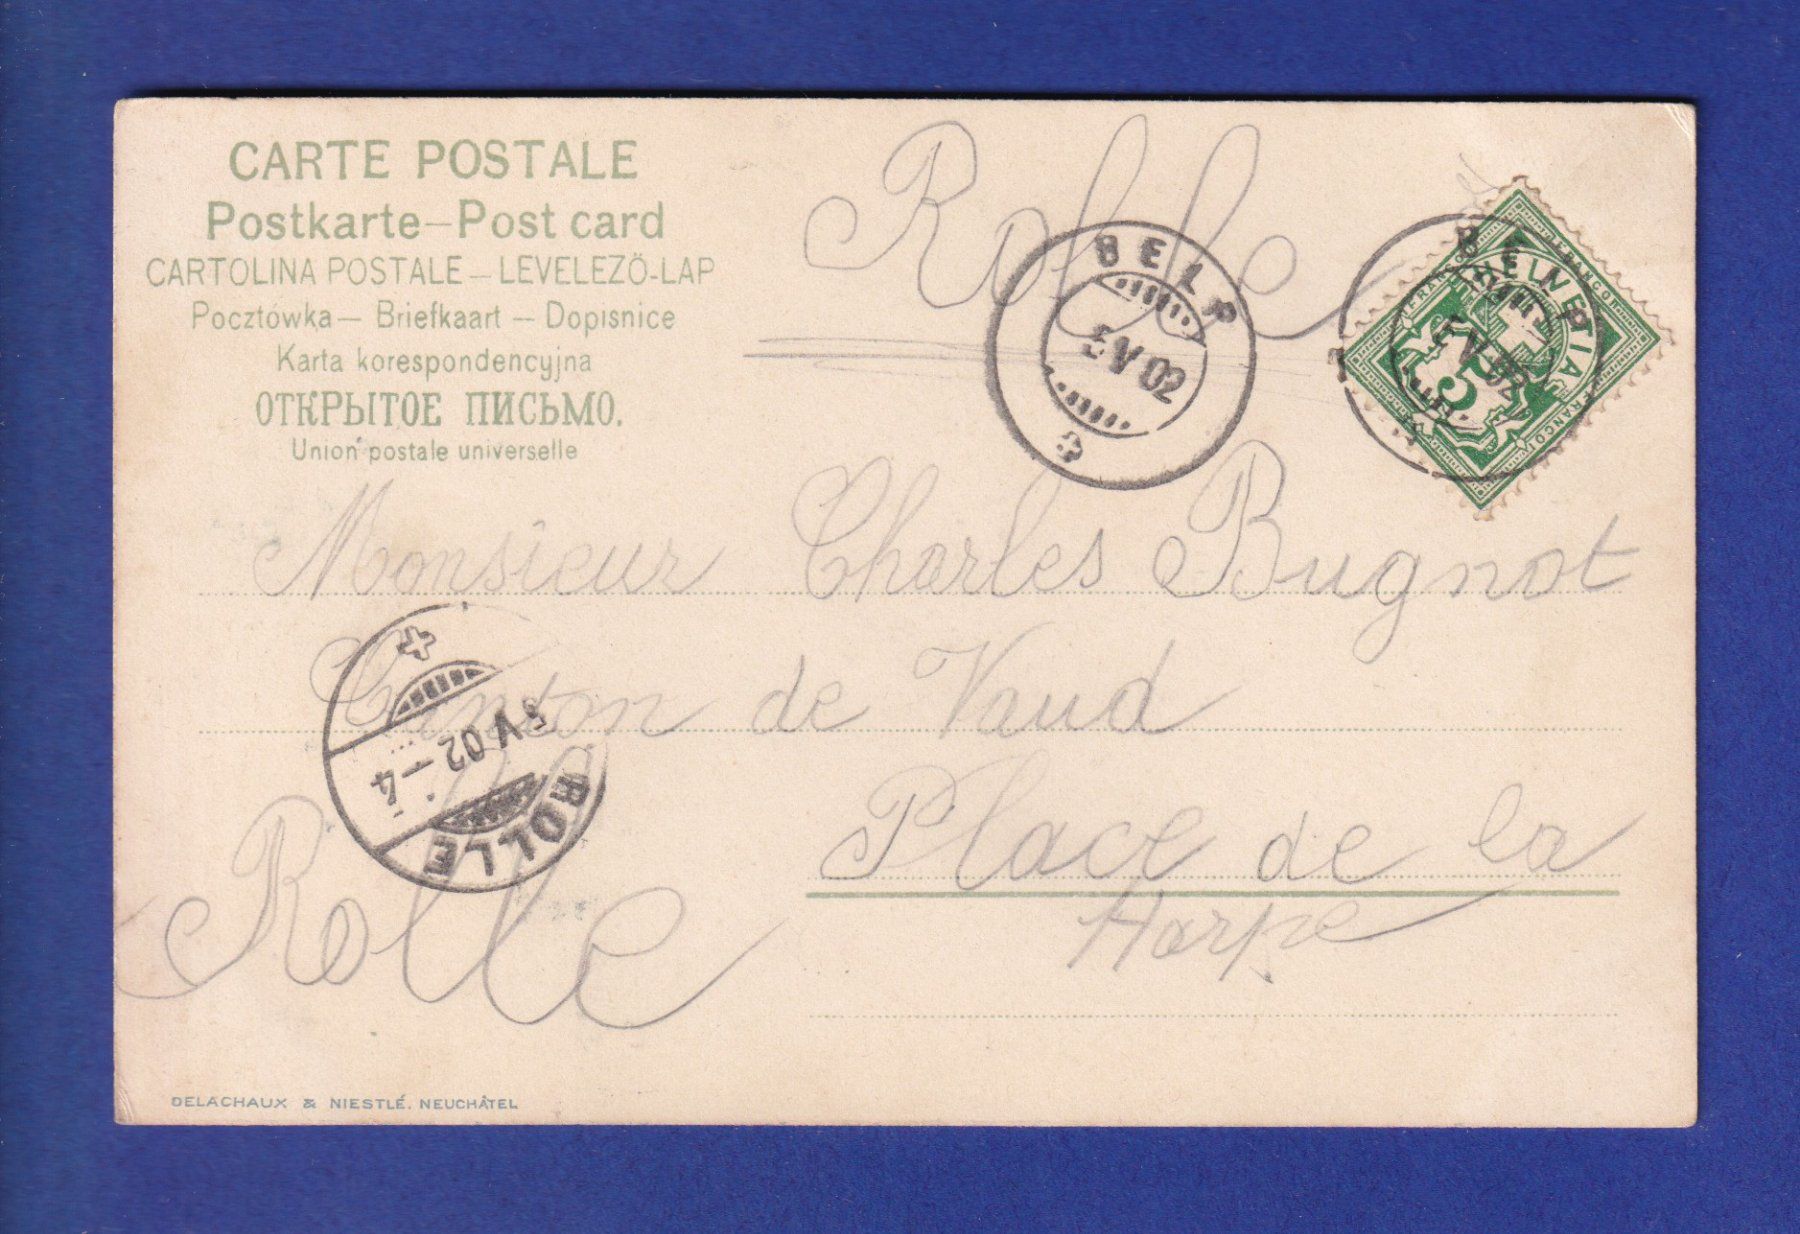 CARTE POSTALE
Postkarte—Post card
CARTOLINA POSTALE — LEVELEZÖ-LAP
Pocztówka — Briefkaart — Dopisnice
Karta korespondencyjna
ОТКРЫТОЕ ПИСЬМО.
Union postale universelle
Rolle
BELP
5 V 02
BELP
V 02
FRANCO FRANCO HELVETIA FRANCO
5
Monsieur Charles Bugnot
Canton de Vaud
ROLLE
5 V 02 – 4
Place de la
Harpe
Rolle
DELACHAUX & NIESTLÉ. NEUCHÂTEL